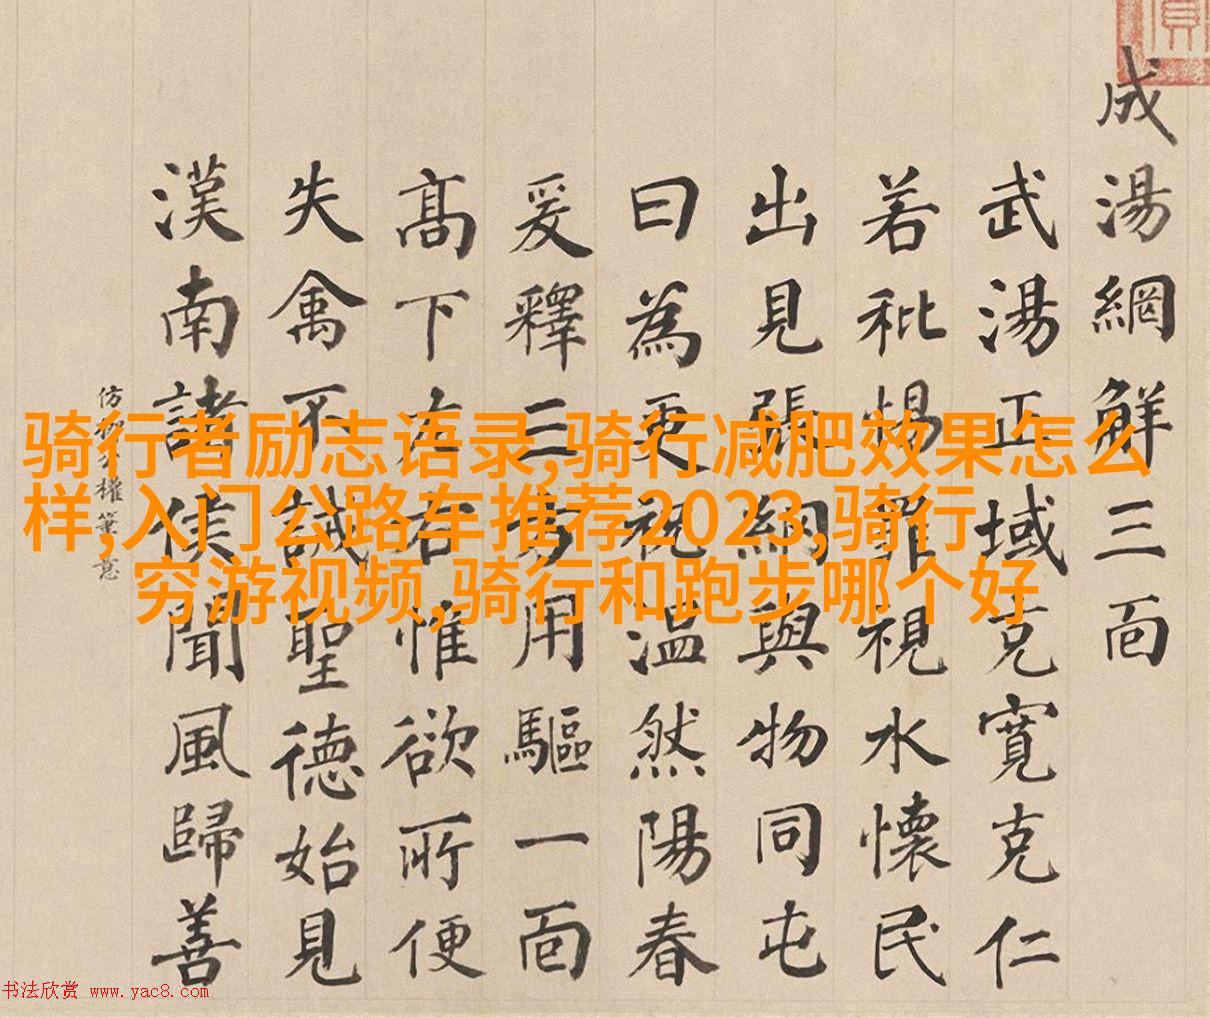 成湯網觧三面
武湯正域克寬克仁
若秕惕罪視水懷民
出見張網與物同屯
曰為更祝溫然陽春
爰釋三方用驅一面
高下左右惟欲所便
失禽不誡聖德始見
漢南諸侯聞風歸善
仿柳公權筆意
骑行者励志语录,骑行减肥效果怎么
样,入门公路车推荐2023,骑行
穷游视频,骑行和跑步哪个好
书法欣赏 www.yac8.com